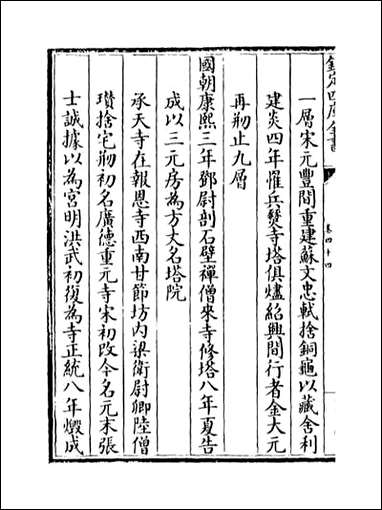 一層宋元豐間重建蘇文忠軾捨銅龜以藏舍利
建炎四年罹兵燹寺塔俱燼紹興間行者金大元
再刱止九層
國朝康熙三年鄧尉剖石壁禪僧來寺修塔八年夏告
成以三元房為方丈名塔院
承天寺在報恩寺西南甘節坊內梁衛尉卿陸僧
瓚捨宅刱初名廣德重元寺宋初改今名元末張
士誠據以為宮明洪武初復為寺正統八年燬成
欽定四庫全書
卷四十四